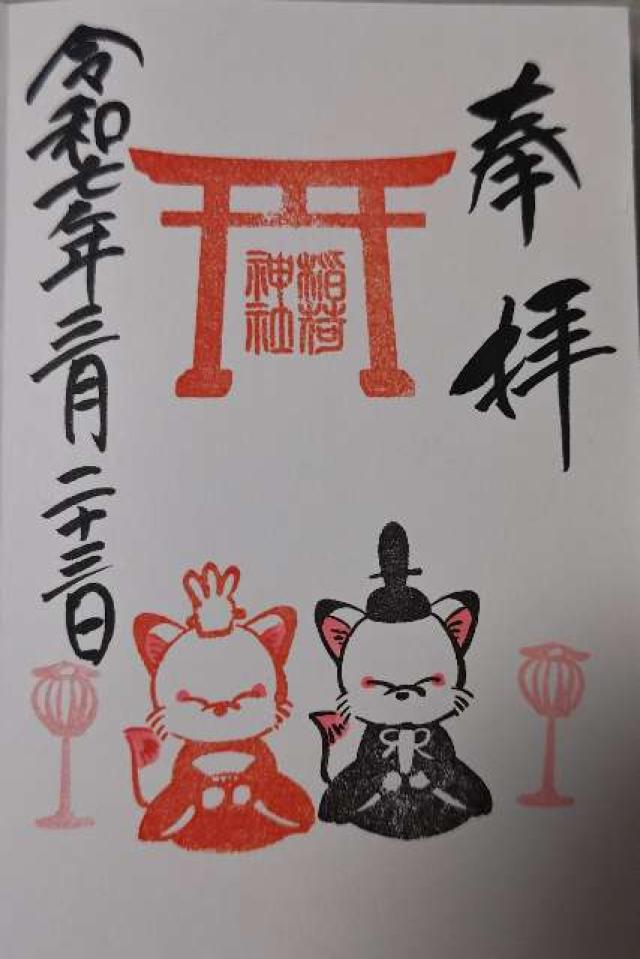 奉拝
稲荷
神社
令和七年三月二十三日